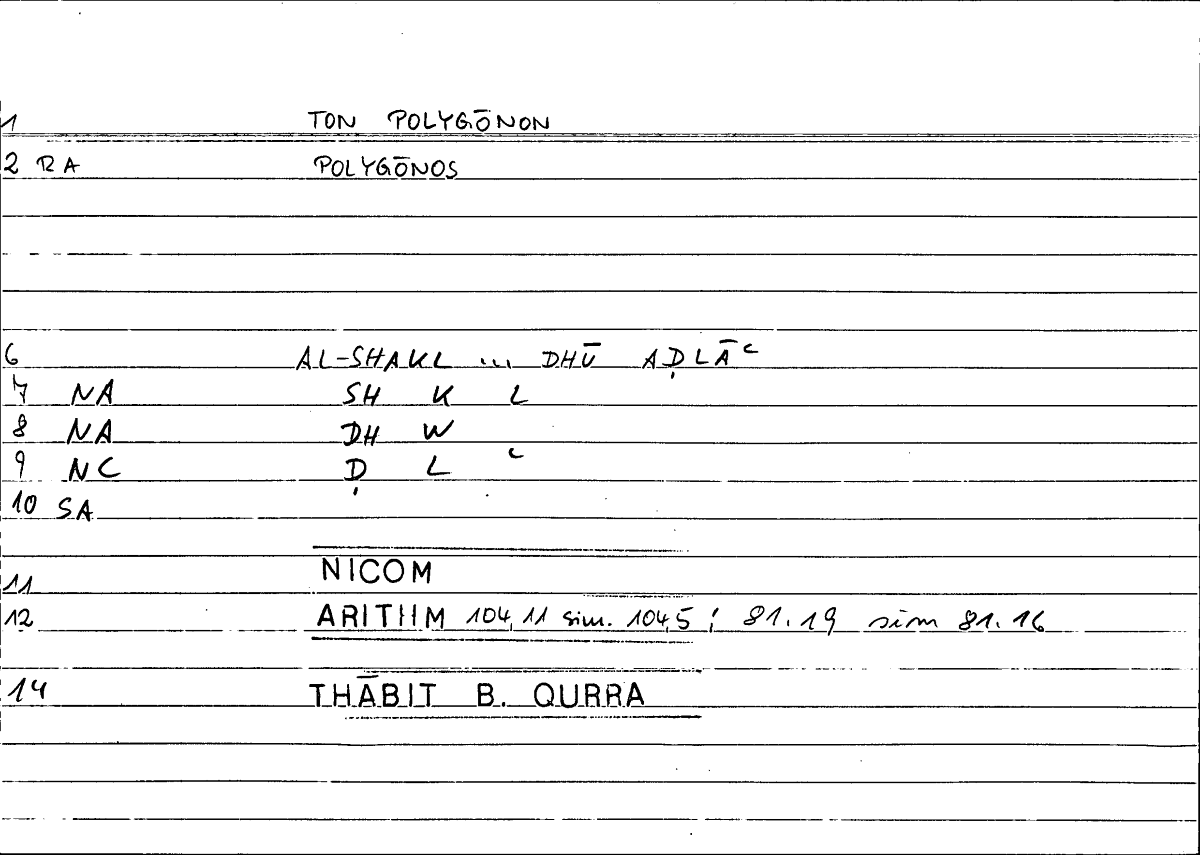 1 TON POLYGŌNON
2 RA POLYGŌNOS
6 AL-SHAKL ... DHŪ AḌLĀʿ
7 NA SH K L
8 NA DH W
9 NC Ḍ L ʿ
10 SA
11 NICOM
12 ARITHM 104,11 sim. 104,5 ; 81.19 sim 81.16
14 THĀBIT B. QURRA